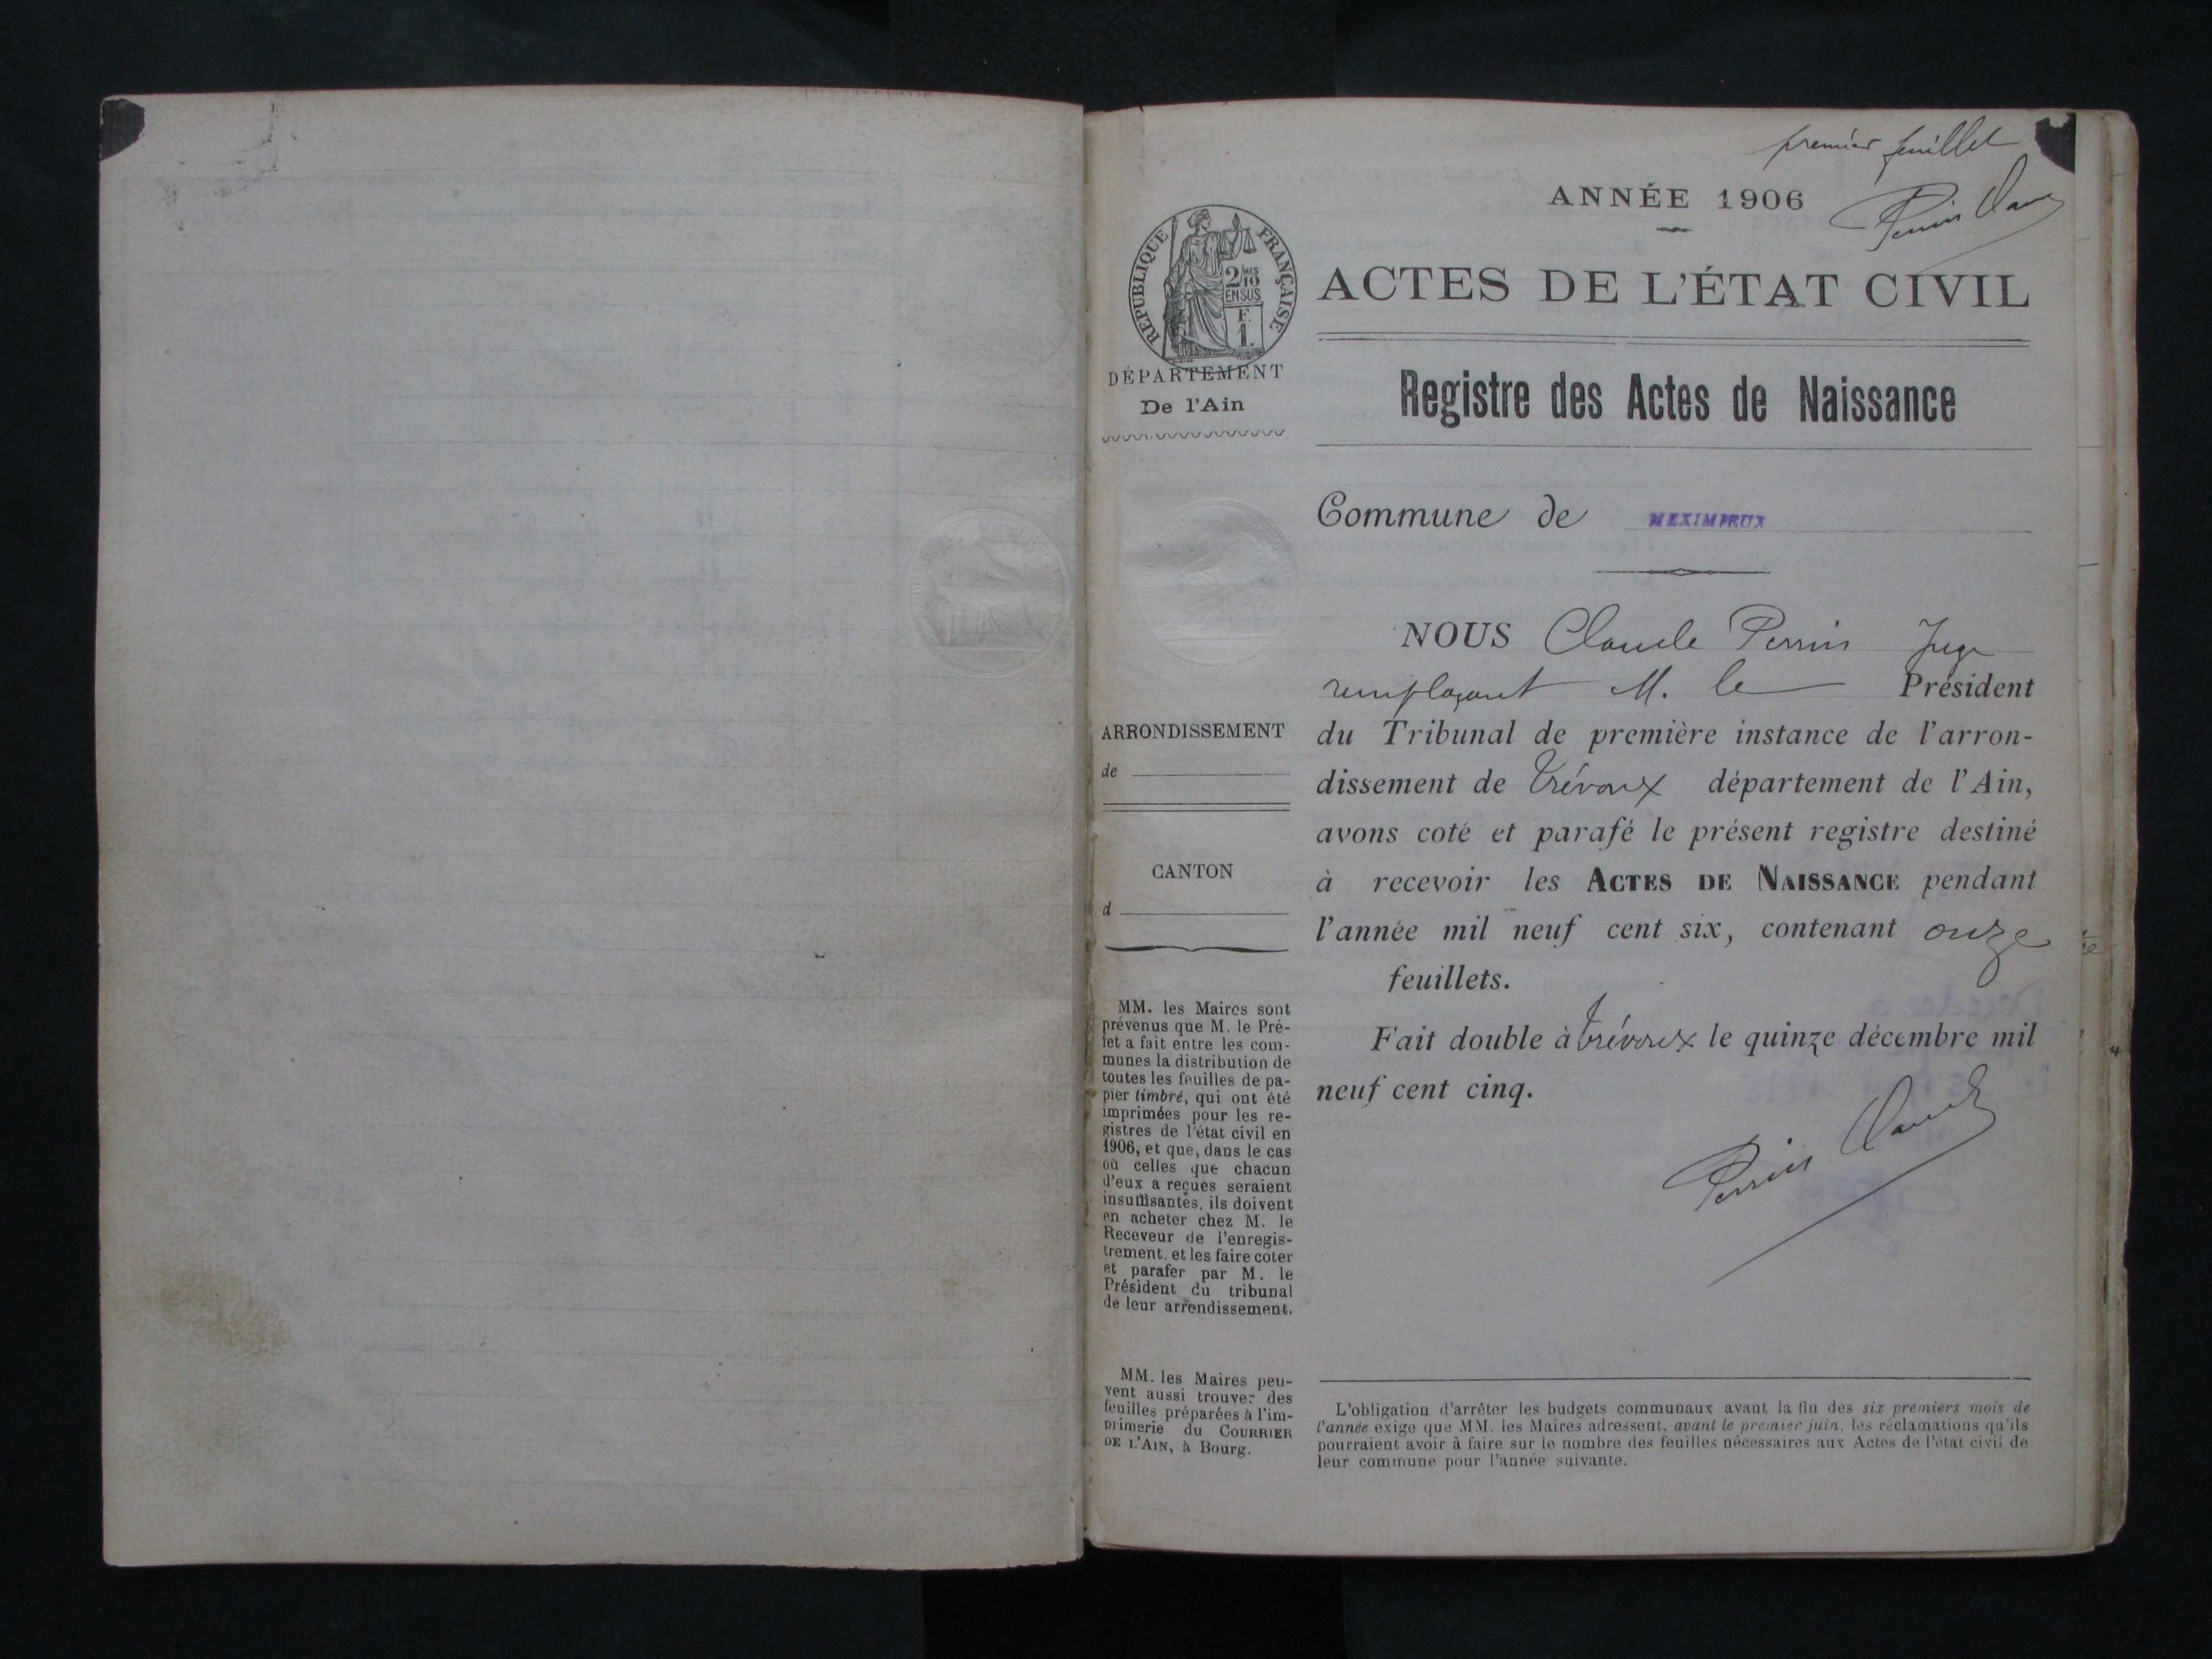 premier feuillet
ANNÉE 1906
Perrin Claude
RÉPUBLIQUE FRANÇAISE
2/10 MES
EN SUS
F.
1.
ACTES DE L'ÉTAT CIVIL
DÉPARTEMENT
De l'Ain
Registre des Actes de Naissance
Commune de MEXIMIEUX
NOUS Claude Perrin Juge
remplaçant M. le Président
du Tribunal de première instance de l'arron-
dissement de Trévoux département de l'Ain,
avons coté et parafé le présent registre destiné
à recevoir les ACTES DE NAISSANCE pendant
l'année mil neuf cent six, contenant onze
feuillets.
Fait double à Trévoux le quinze décembre mil
neuf cent cinq.
Perrin Claude
ARRONDISSEMENT
de
CANTON
d
MM. les Maires sont
prévenus que M. le Pré-
fet a fait entre les com-
munes la distribution de
toutes les feuilles de pa-
pier timbré, qui ont été
imprimées pour les re-
gistres de l'état civil en
1906, et que, dans le cas
où celles que chacun
d'eux a reçues seraient
insuffisantes, ils doivent
en acheter chez M. le
Receveur de l'enregis-
trement, et les faire coter
et parafer par M. le
Président du tribunal
de leur arrondissement.
MM. les Maires peu-
vent aussi trouver des
feuilles préparées à l'im-
primerie du COURRIER
DE L'AIN, à Bourg.
L'obligation d'arrêter les budgets communaux avant la fin des six premiers mois de
l'année exige que MM. les Maires adressent, avant le premier juin, les réclamations qu'ils
pourraient avoir à faire sur le nombre des feuilles nécessaires aux Actes de l'état civil de
leur commune pour l'année suivante.